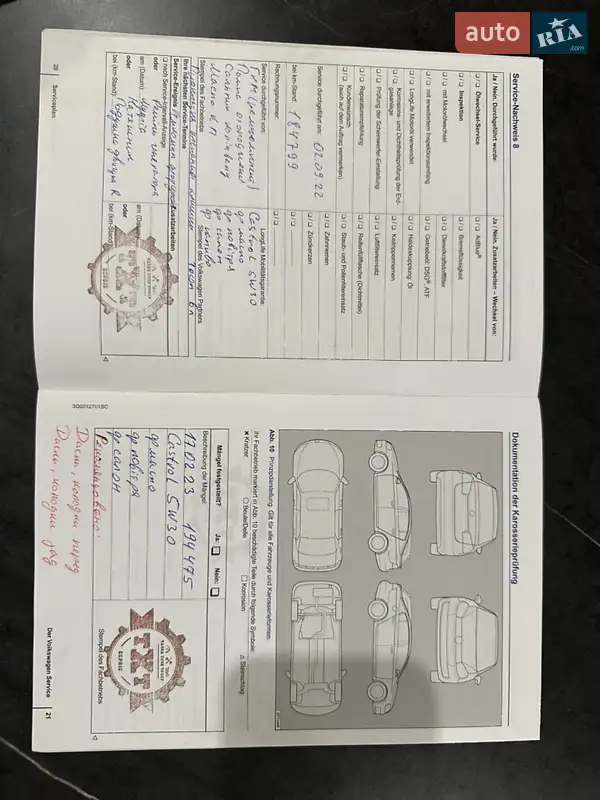 auto RIA.com
Service-Nachweis 8
Ja / Nein: Durchgeführt wurde:
Ölwechsel-Service
Inspektion
mit Motorölwechsel
mit erweitertem Inspektionsumfang
LongLife Motoröl verwendet
Korrosions- und Dichtheitsprüfung der Erdgasanlage
Prüfung der Scheinwerfer-Einstellung
Reparaturempfehlung
Kundenwunsch
(auch auf dem Auftrag vermerken)
Service durchgeführt am: 02.09.22
bei km-Stand: 184799
Rechnungsnummer:
Service durchgeführt von:
Stempel des Fachbetriebs
Ihre nächsten Service-Termine
Service-Ereignis
nach Service-Intervall-Anzeige
oder
am (Datum):
oder
bei (km-Stand):
Ja / Nein: Zusatzarbeiten - Wechsel von:
AdBlue®
Bremsflüssigkeit
Dieselkraftstofffilter
Getriebeöl: DSG®, ATF
Haldexkupplung: Öl
Keilrippenriemen
Luftfiltereinsatz
Reifenfüllflasche (Dichtmittel)
Staub- und Pollenfiltereinsatz
Zahnriemen
Zündkerzen
LongLife Mobilitätsgarantie:
Castrol 5W30
ф масло
ф повітря
ф салон
ф паливо
Stempel des Volkswagen Partners
Zusatzarbeiten
am (Datum):
oder
bei (km-Stand):
ТХТ
20 Serviceplan
3G0012701BC
Dokumentation der Karosserieprüfung
Abb. 10 Prinzipdarstellung. Gilt für alle Fahrzeuge und Karosserieformen.
Ihr Fachbetrieb markiert in Abb. 10 beschädigte Teile durch folgende Symbole:
✕ Kratzer
○ Beule/Delle
□ Korrosion
△ Steinschlag
Mängel festgestellt?
Ja:
Nein:
Beschreibung der Mängel:
17.02.23 194475
Castrol 5W30
ф масло
ф повітря
ф салон
Рекомендовано:
Диски, колодки перед
Диски, колодки зад
ТХТ
СЕРВІС
Stempel des Fachbetriebs
Der Volkswagen Service 21